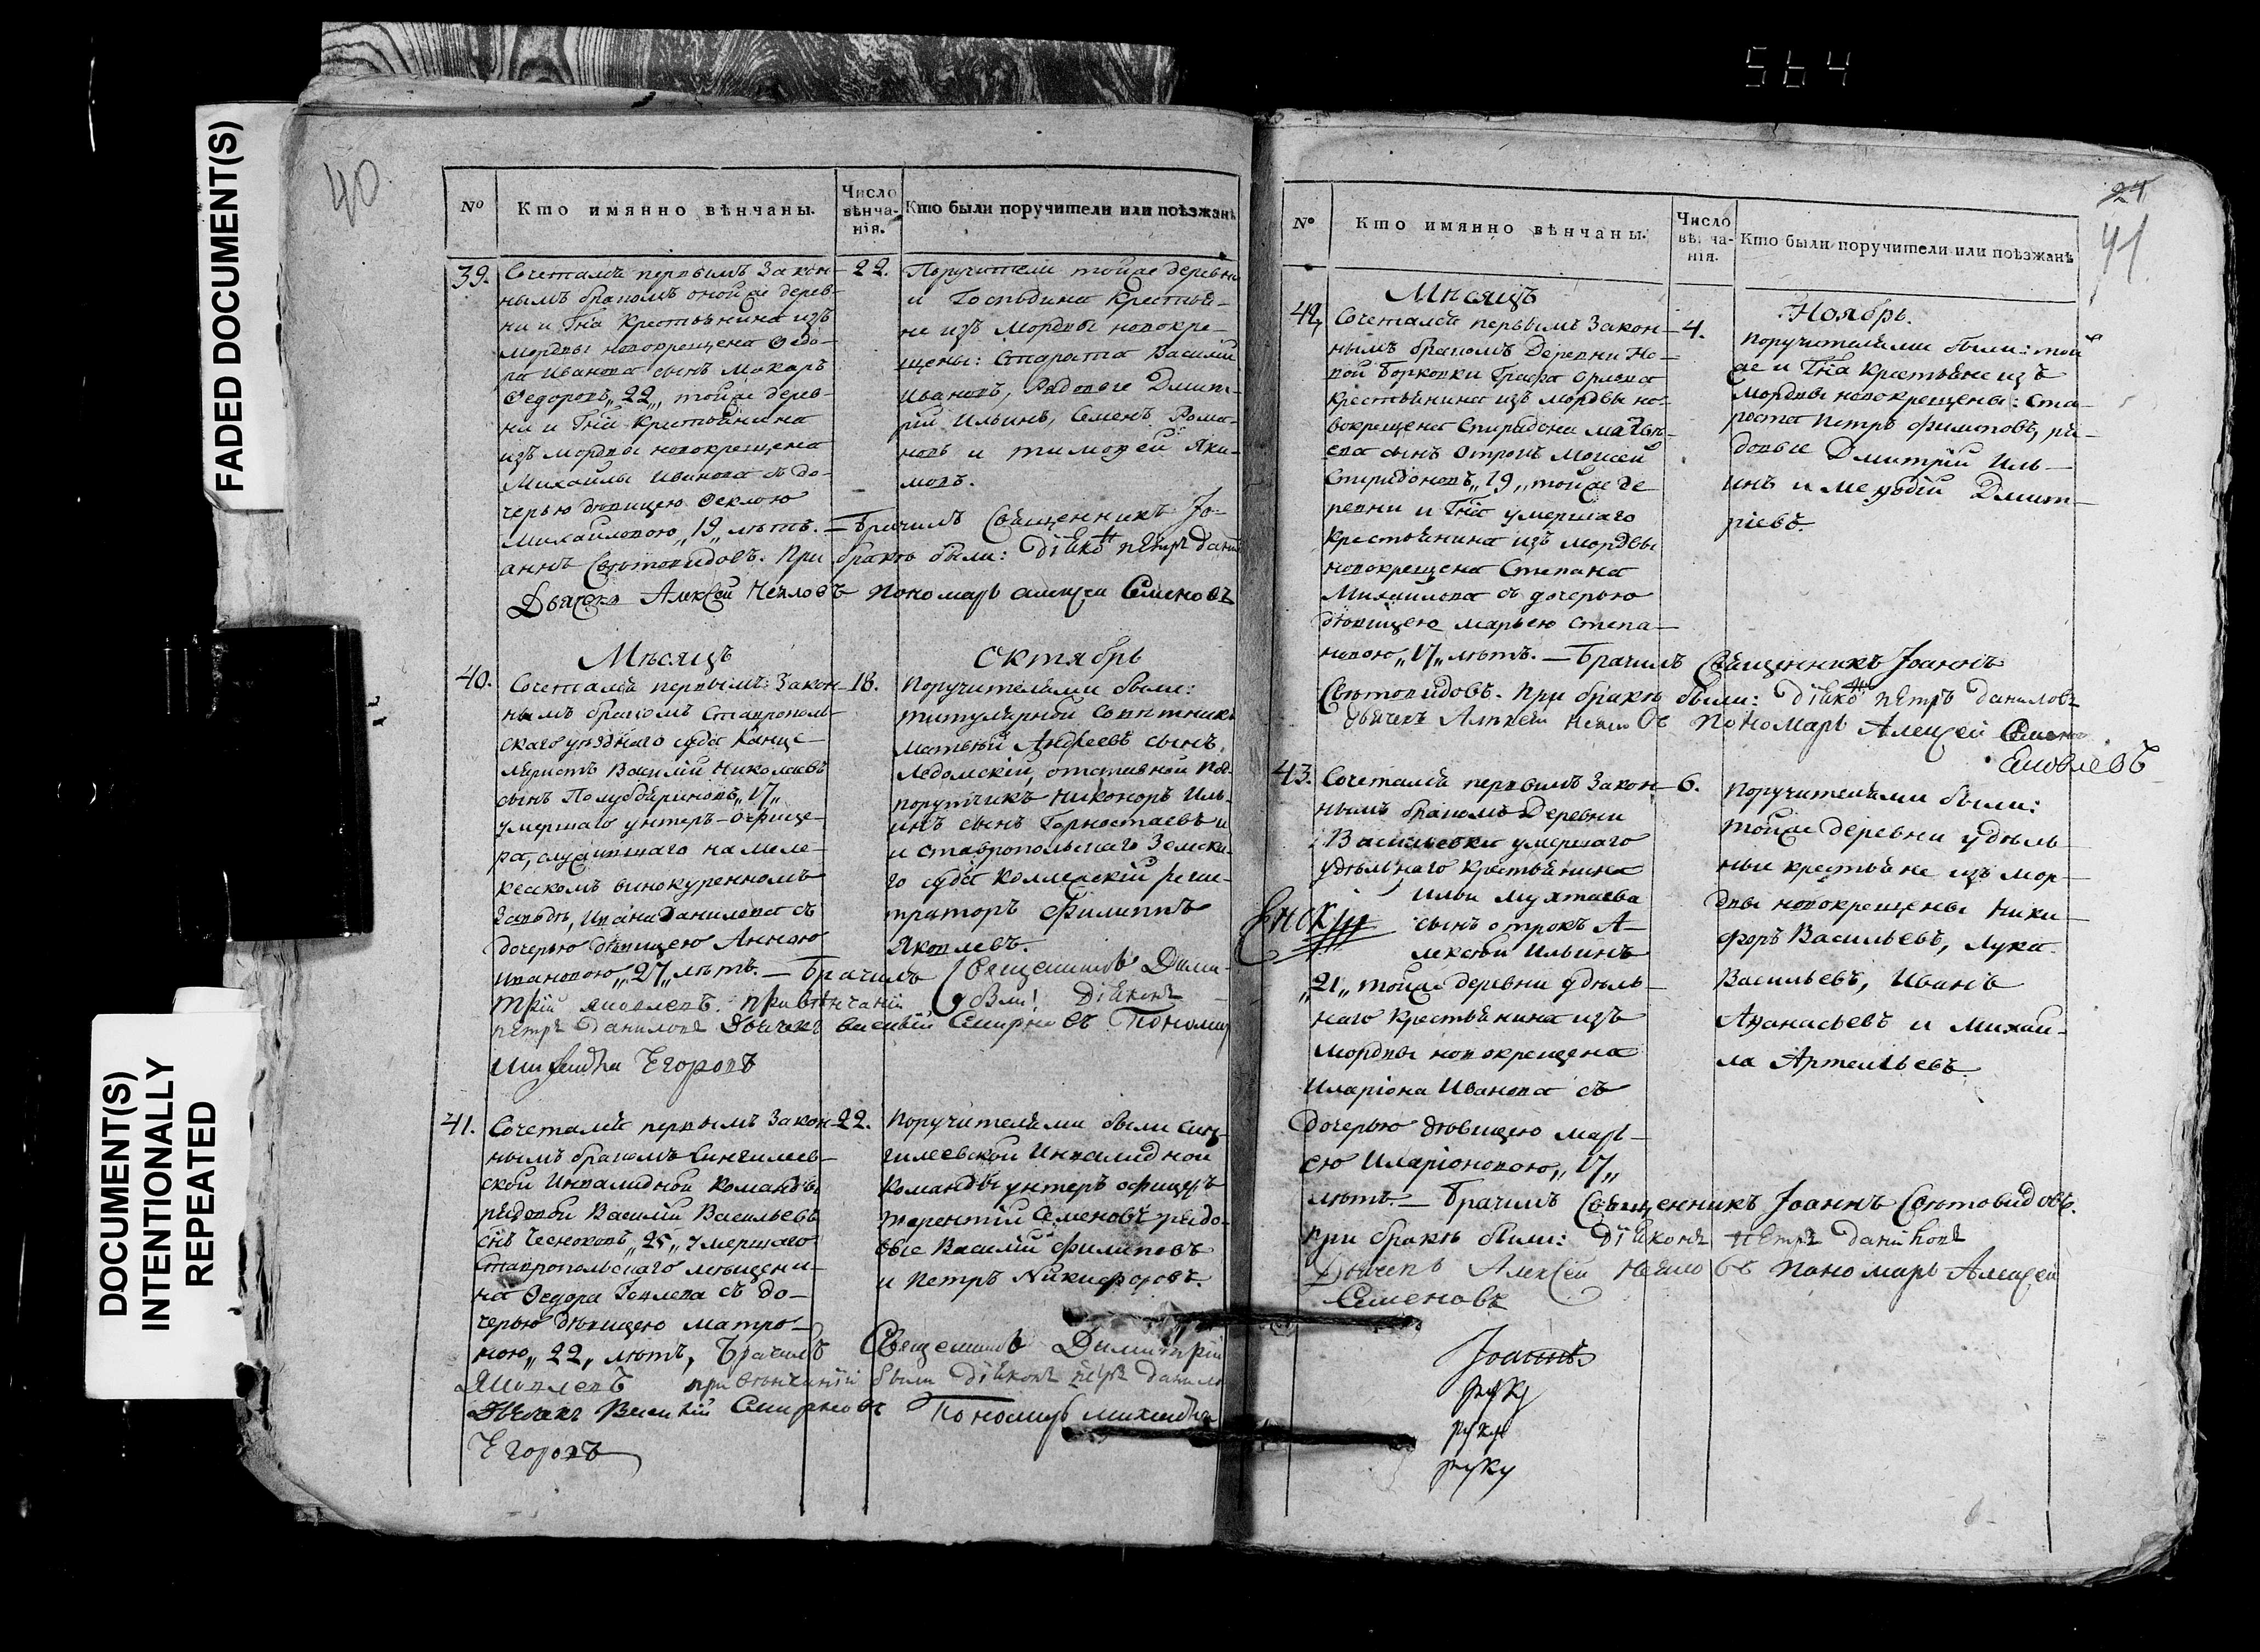 564
FADED DOCUMENT(S)
DOCUMENT(S)
INTENTIONALLY
REPEATED
40
№
Кто имянно вѣнчаны.
Число
вѣнча-
нія.
Кто были поручители или поѣзжанѣ
39.
Сочетался первымъ закон-
нымъ бракомъ оной же дерев-
ни и Гна Крестьянина изъ
Мордвы новокрещена Ѳедо-
ра Иванова сынъ Макаръ
Ѳедоровъ „22„ той же дерев-
ни и Гна Крестьянина
изъ мордвы новокрещена
Михаилы Иванова съ до-
черью дѣвицею Ѳеклою
Михайловою „19„ лѣтъ. — Брачилъ Священникъ Іо-
аннъ Святовидовъ. При бракѣ были: діяконъ Петръ Дани
Дьячекъ Алексѣй Неяловъ Пономарь Алексѣй Семеновъ
22.
Поручители той же деревни
и Господина Крестья-
не изъ Мордвы новокре-
щены: Староста Василій
Ивановъ, Рядовые Дмит-
рій Ильинъ, Семенъ Рома-
новъ и Тимоѳей Яки-
мовъ.
Мѣсяцъ
Октябрь
40.
Сочетался первымъ закон-
нымъ бракомъ Ставрополь-
скаго уѣзднаго суда Канце-
ляристъ Василій Николаевъ
сынъ Полубояриновъ „17„
умершаго унтеръ-офице-
ра, служившаго на Меле-
кескомъ винокуренномъ
заводѣ, Ивана Данилова съ
дочерью дѣвицею Анною
Ивановою „27„ лѣтъ. — Брачилъ Священникъ Дими-
трій Яковлевъ. при вѣнчаніи были: Діяконъ
Петръ Даниловъ Дьячекъ Василій Смирновъ Пономарь
Михайла Егоровъ
18.
Поручителями были:
титулярной совѣтникъ
Матвѣй Андреевъ сынъ
Ледомскій, отставной под-
порутчикъ Никоноръ Иль-
инъ сынъ Горностаевъ и
и Ставропольскаго Земска-
го суда Коллежскій реги-
страторъ Филиппъ
Яковлевъ.
41.
Сочетался первымъ закон-
нымъ бракомъ Сингилеев-
ской Инвалидной команды
рядовой Василій Васильевъ
снъ Чесноковъ „25„ умершаго
Ставропольскаго мѣщани-
на Ѳедора съ до-
черью дѣвицею Матро-
ною „22„ лѣтъ, Брачилъ Священникъ Димитрій
Яковлевъ при вѣнчаніи были Діяконъ Петръ Данило
Дьячекъ Василій Смирновъ Пономарь Михайла
Егоровъ
22.
Поручителями были Син-
гилеевской Инвалидной
команды унтеръ офицеръ
Терентій Семеновъ рядо-
вые Василій Филиповъ
и Петръ Никифоровъ.
24
41
№
Кто имянно вѣнчаны.
Число
вѣнча-
нія.
Кто были поручители или поѣзжанѣ
Мѣсяцъ
Ноябрь.
42,
Сочетался первымъ закон-
нымъ бракомъ Деревни Но-
вой Борковки Графа Орлова
крестьянина изъ мордвы но-
вокрещена Спиридона Матвѣ-
ева сынъ отрокъ Моисей
Спиридоновъ „19„ той же де
ревни и Гна умершаго
крестьянина изъ мордвы
новокрещена Степана
Михаилова съ дочерью
дѣвицею Марьею Степа-
новою „17„ лѣтъ. — Брачилъ Священникъ Іоаннъ
Святовидовъ. При бракѣ были: діяконъ Петръ Даниловъ
Дьячекъ Алексѣй Неяловъ Пономарь Алексѣй Семено
4.
Поручителями были: той
же и Гна Крестьяне изъ
Мордвы новокрещены: Ста-
роста Петръ Филиповъ, ря-
довые Дмитрій Иль-
инъ и Меѳодій Дмит-
ріевъ.
43.
Сочетался первымъ закон-
нымъ бракомъ Деревни
Васильевки умершаго
удѣльнаго крестьянина
Ильи Мухтаева
сынъ отрокъ А-
лексѣй Ильинъ
„21„ той же деревни удѣль-
наго крестьянина изъ
мордвы новокрещена
Иларіона Иванова съ
дочерью дѣвицею Марь-
ею Иларіоновою „17„
лѣтъ. — Брачилъ Священникъ Іоаннъ Святовидовъ.
при бракѣ были: Діяконъ Петръ Даниловъ
Дьячекъ Алексѣй Неяловъ Пономарь Алексѣй
Семеновъ
6.
Поручителями были:
той же деревни удѣль-
ные крестьяне изъ мор-
двы новокрещены Ники-
форъ Васильевъ, Лука
Васильевъ, Иванъ
Аѳанасьевъ и Михаи-
ла Артемьевъ
Іоаннъ
руку
руку
руку